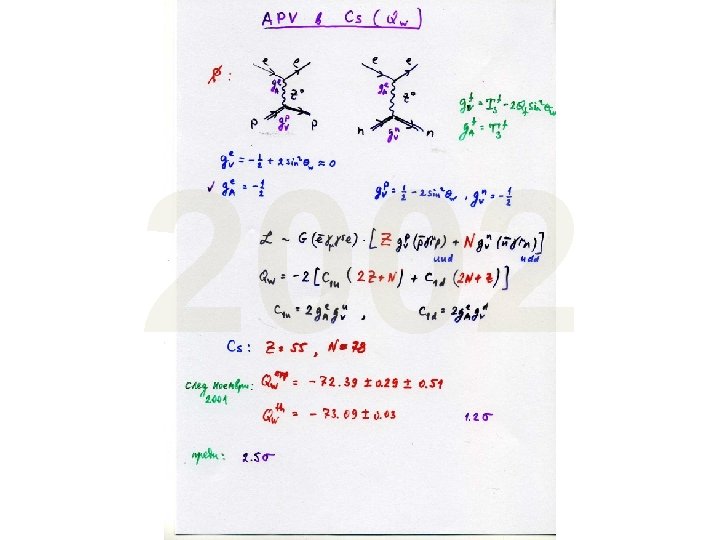 APV в Cs (Qw)
e e e e
gAᵉ Z° gAᵉ Z°
p gVᵖ p n gVⁿ n
gVᶠ = T₃ᶠ - 2Qf sin²θw
gAᶠ = T₃ᶠ
gVᵉ = -1/2 + 2 sin²θw ≈ 0
✓ gAᵉ = -1/2
gVᵖ = 1/2 - 2 sin²θw , gVⁿ = -1/2
2002
ℒ ~ G (ēγμγ⁵e) · [Z gVᵖ (p̄γᵘp) + N gVⁿ (n̄γᵘn)]
uud udd
Qw = -2 [C1u (2Z+N) + C1d (2N+Z)]
C1u = 2gAᵉgVᵘ , C1d = 2gAᵉgVᵈ
Cs: Z = 55 , N = 78
след ноември: Qwᵉˣᵖ = - 72.39 ± 0.29 ± 0.51
2001
Qwᵗʰ = - 73.09 ± 0.03 1.2σ
преди: 2.5σ